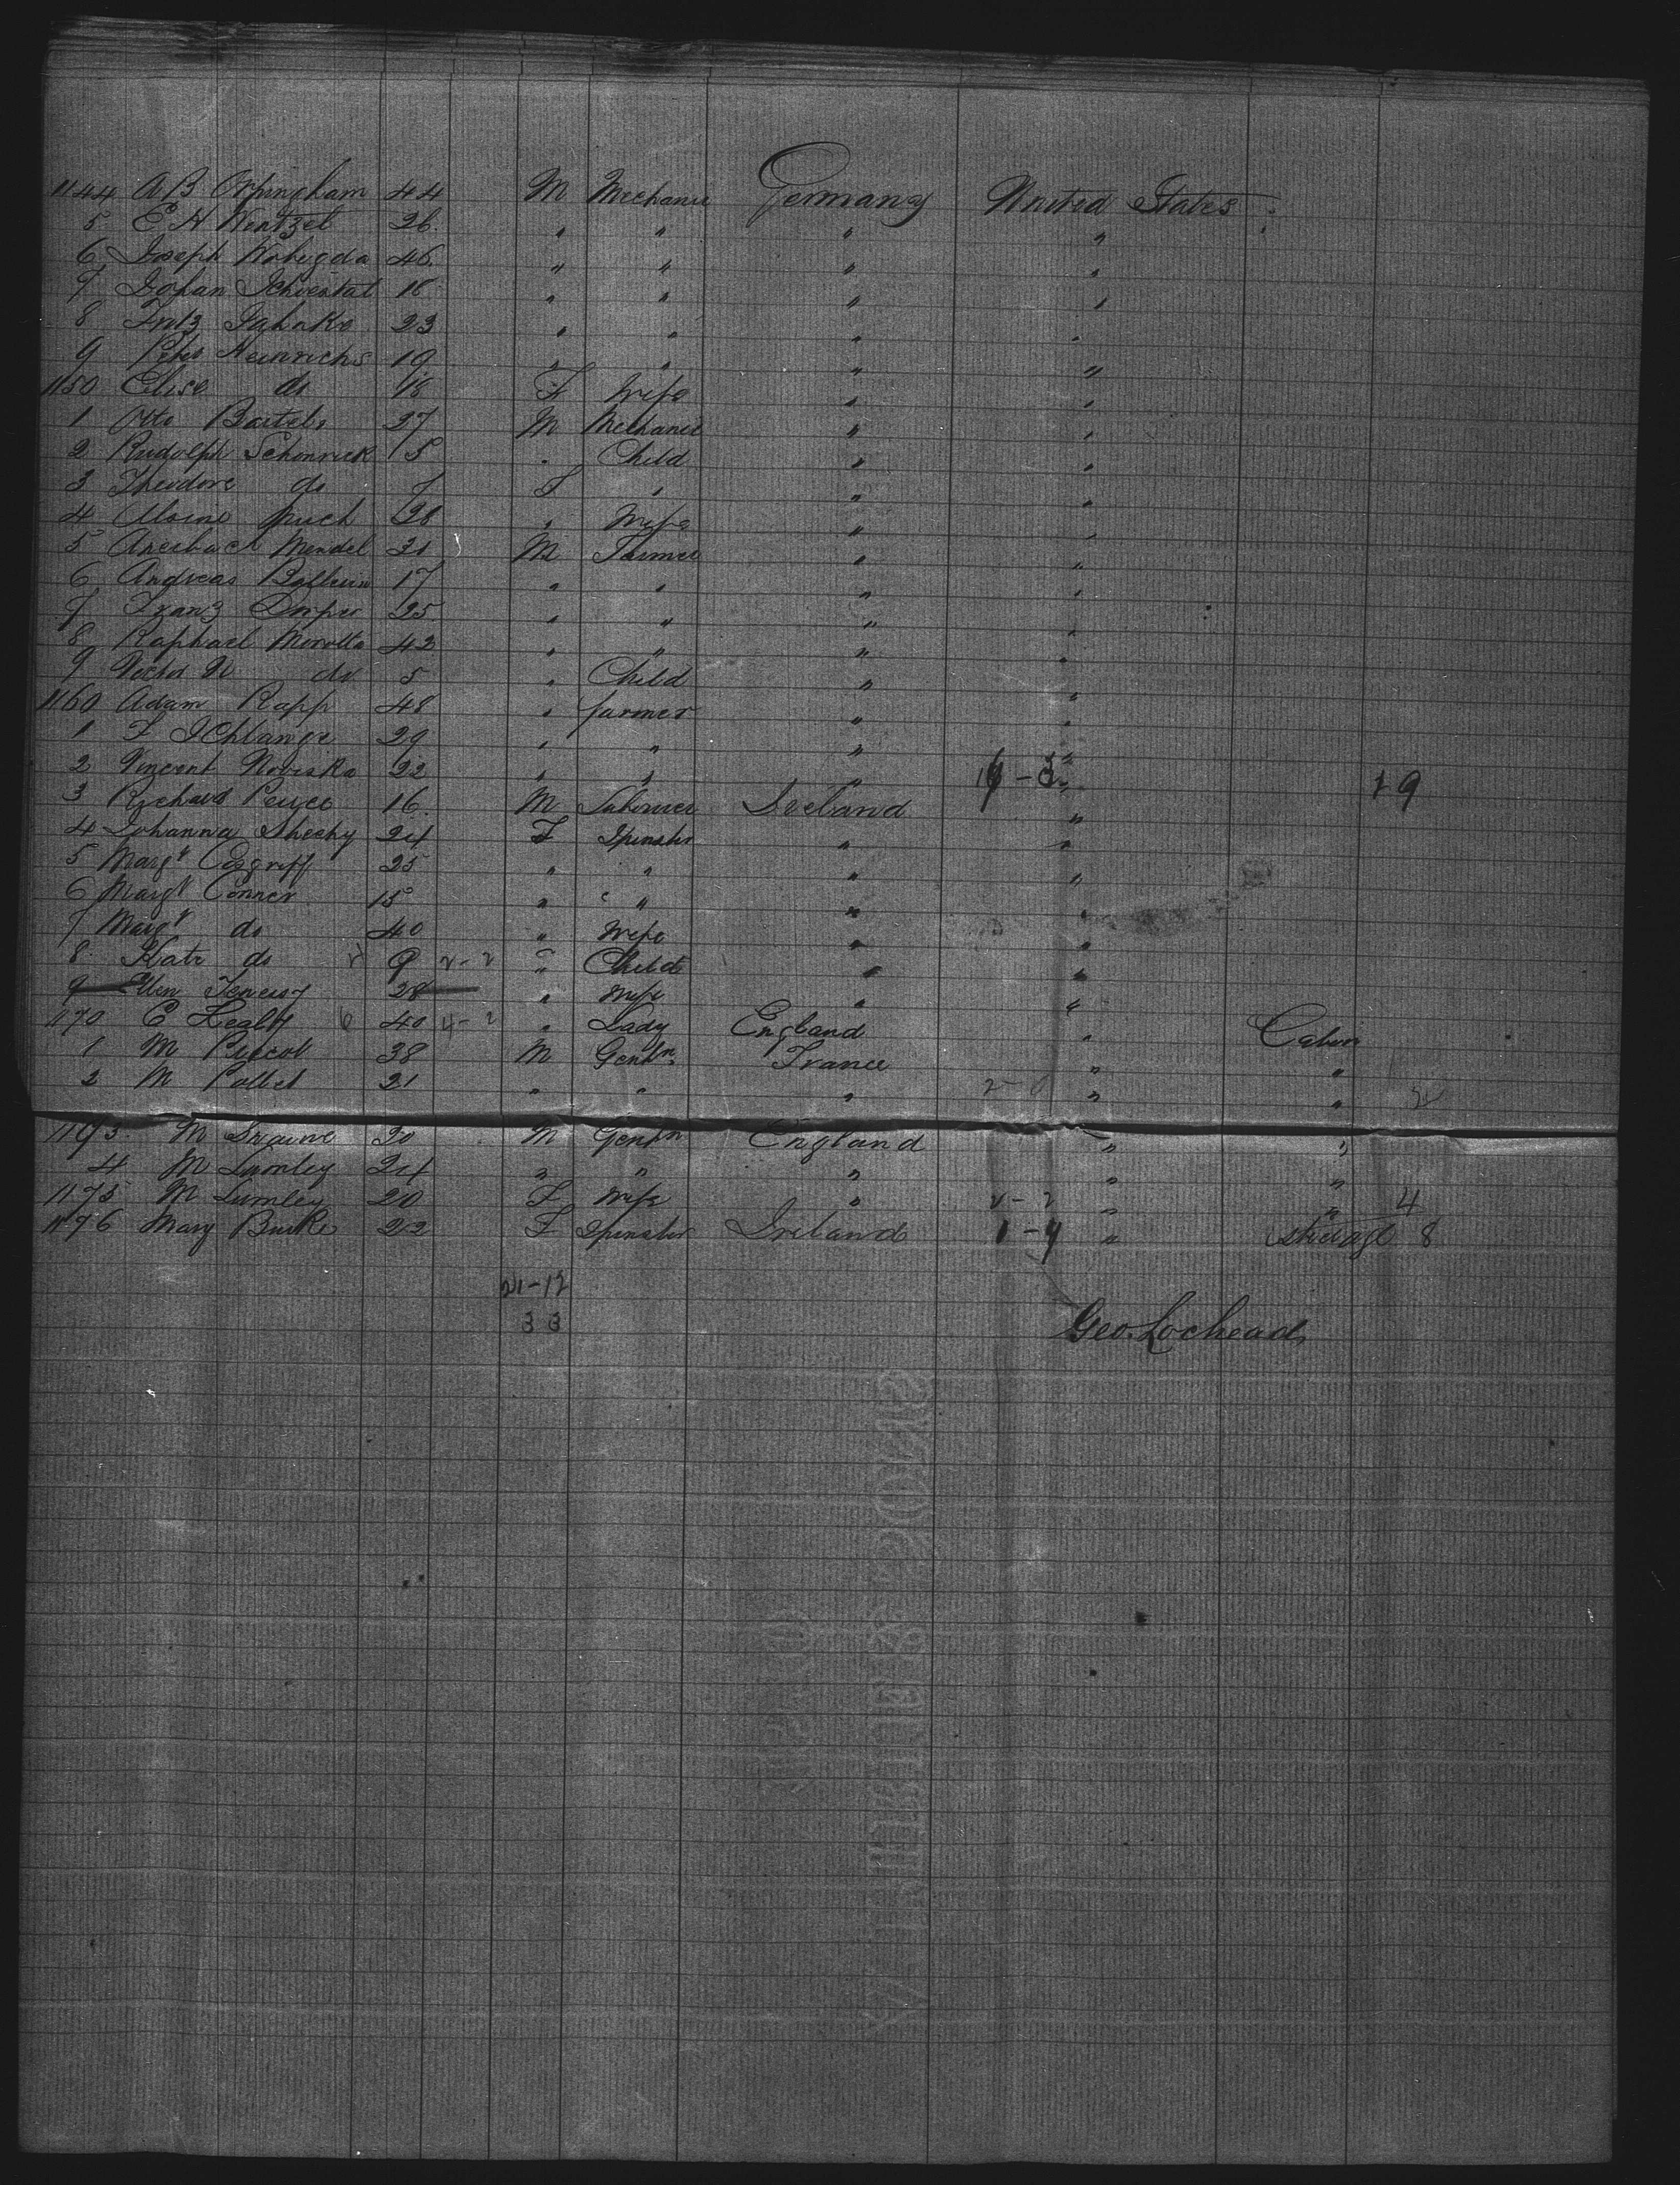 1144 A B Orpingham 44 M Mechanic Germany United States
5 E H Wentzel 26 " " " "
6 Joseph 46 " " " "
7 Johan 18 " " " "
8 Fritz Jahnke 23 " " " "
9 Peter Heinrichs 19 " " " "
1150 Elise do 18 F Wife " "
1 Otto Bartels 27 M Mechanic " "
2 Rudolph Schonrick 5 " Child " "
3 Theodore do 7 F " " "
4 28 " Wife " "
5 Mendel 31 M Farmer " "
6 Andreas 17 " " " "
7 Franz 25 " " " "
8 Raphael 42 " " " "
9 do 5 " Child " "
1160 Adam Rapp 48 " farmer " "
1 F Schlange 29 " " " "
2 Vincent Noviska 22 " " " 16 - 3 " 19
3 Richard 16 M Labourer Ireland "
4 Johanna Sheehy 24 F Spinster " "
5 Margt 25 " " " "
6 Margt Conner 15 " " " "
7 Margt do 40 " Wife " "
8 Kate do 9 2-2 " Child " "
9 Ellen 28 " Wife " "
1170 E Healy 6 40 4-2 " Lady England " Cabin
1 M 38 M Gentn France " "
2 M Pollet 21 " " " 2-0 " "
1173 M 30 M Gentn England " "
4 M Lumley 24 " " " " "
1175 M Lumley 20 F Wife " 2-2 " " 4
1176 Mary Burke 22 F Spinster Ireland 1-7 " steerage 8
21-12
33
Geo. Lochead